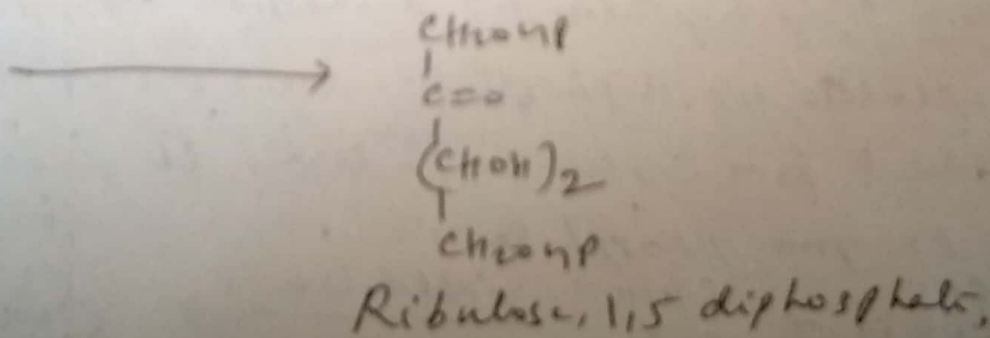 CH2OHP
C=O
(CHOH)2
CH2OHP
Ribulose, 1,5 diphosphate,